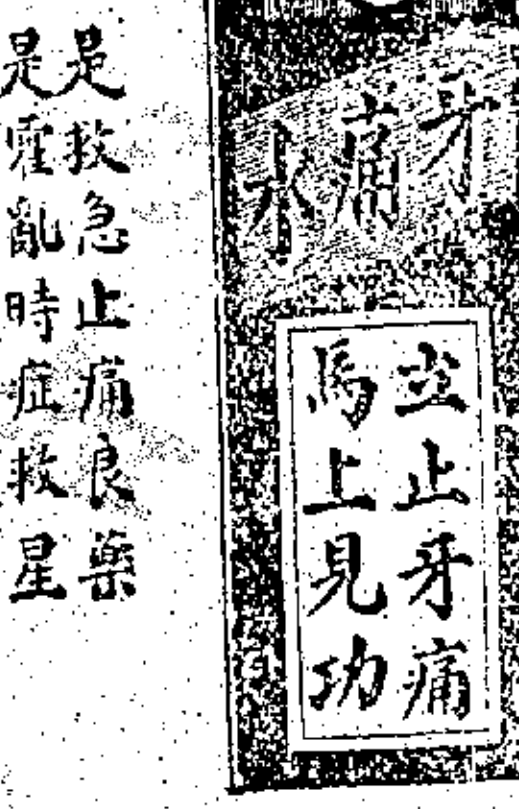 牙痛水
立止牙痛
馬上見功
是救急止痛良藥
是霍亂時症救星